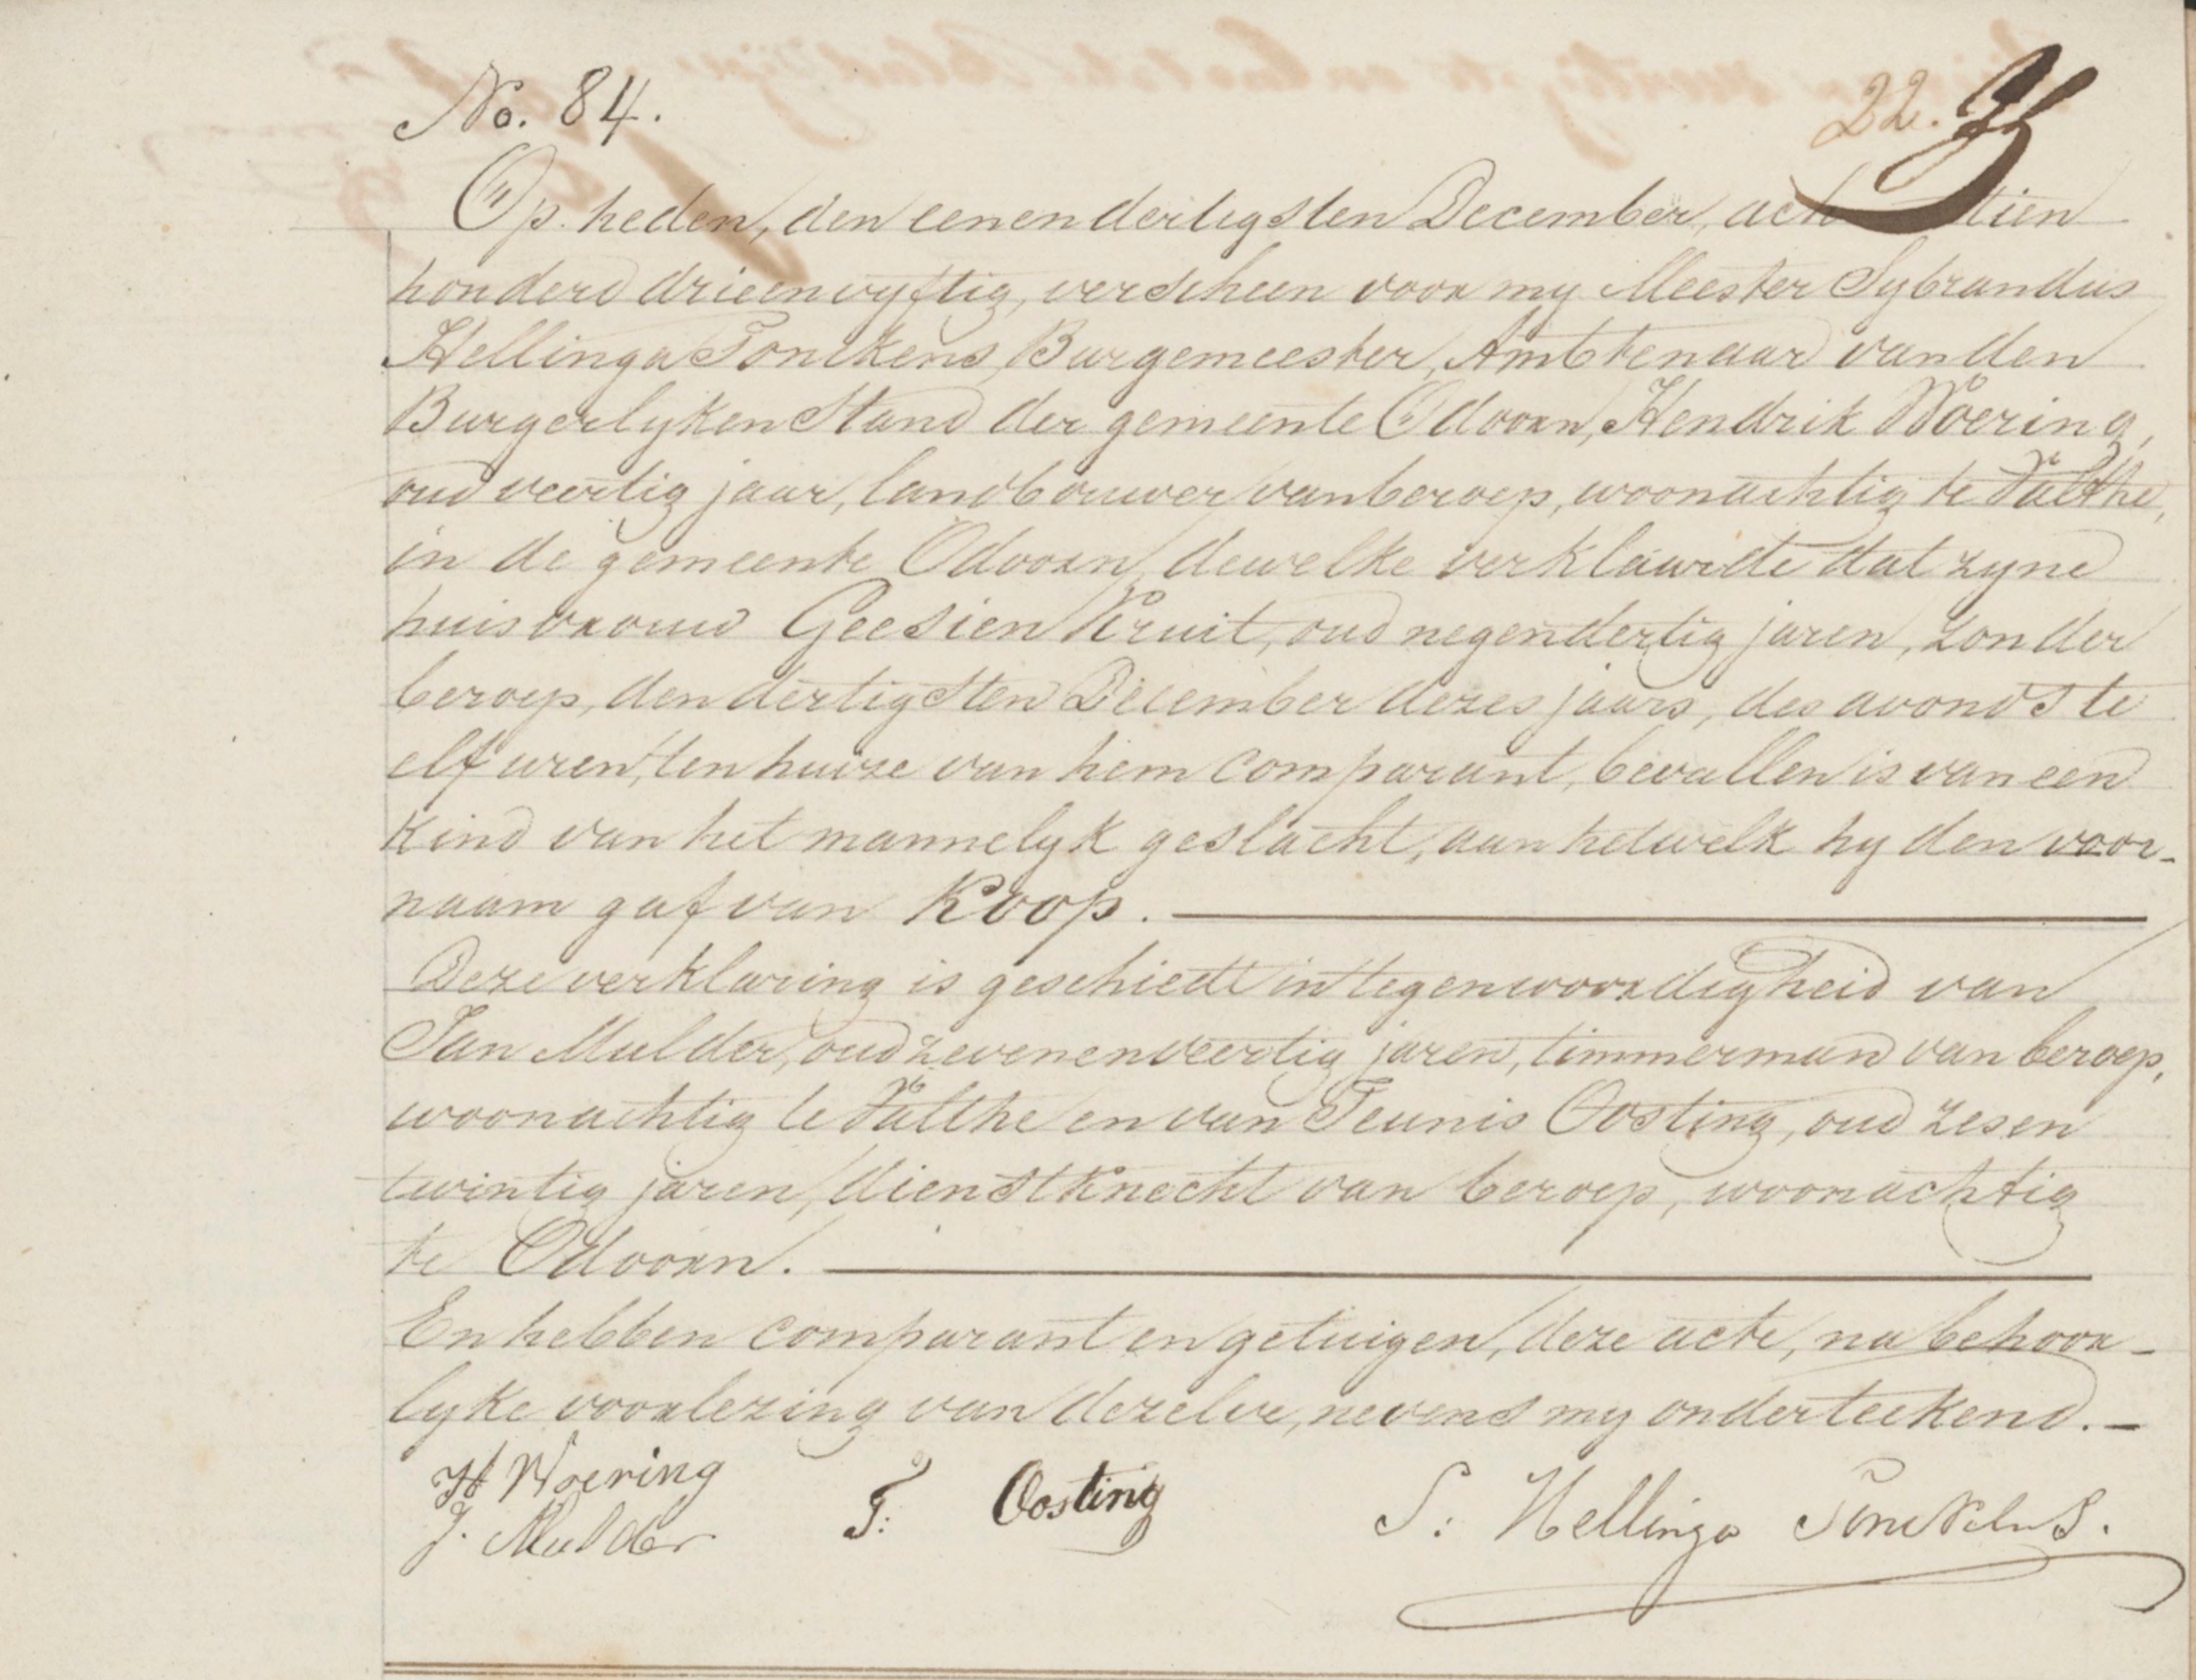 No. 84.
22.
Op heden, den eenendertigsten December, acht tien
honderd drieenvyftig, verscheen voor my Meester Sybrandus
Hellinga Tonckens, Burgemeester, Ambtenaar van den
Burgerlyken Stand der gemeente Odoorn, Hendrik Woering,
oud veertig jaar, landbouwer van beroep, woonachtig te Valthe,
in de gemeente Odoorn, dewelke verklaarde dat zyne
huisvrouw Geesien Kruit, oud negendertig jaren, zonder
beroep, den dertigsten December dezes jaars, des avonds te
elf uren, ten huize van hem comparant, bevallen is van een
kind van het mannelyk geslacht, aan hetwelk hy den voor-
naam gaf van Koop.
Deze verklaring is geschiedt in tegenwoordigheid van
Jan Mulder, oud zevenenveertig jaren, timmerman van beroep,
woonachtig te Valthe en van Teunis Oosting, oud zesen
twintig jaren, dienstknecht van beroep, woonachtig
te Odoorn.
En hebben comparant en getuigen, deze acte, na behoor-
lyke voorlezing van dezelve, nevens my onderteekend.
H Woering
J. Mulder T: Oosting S: Hellinga Tonckens.